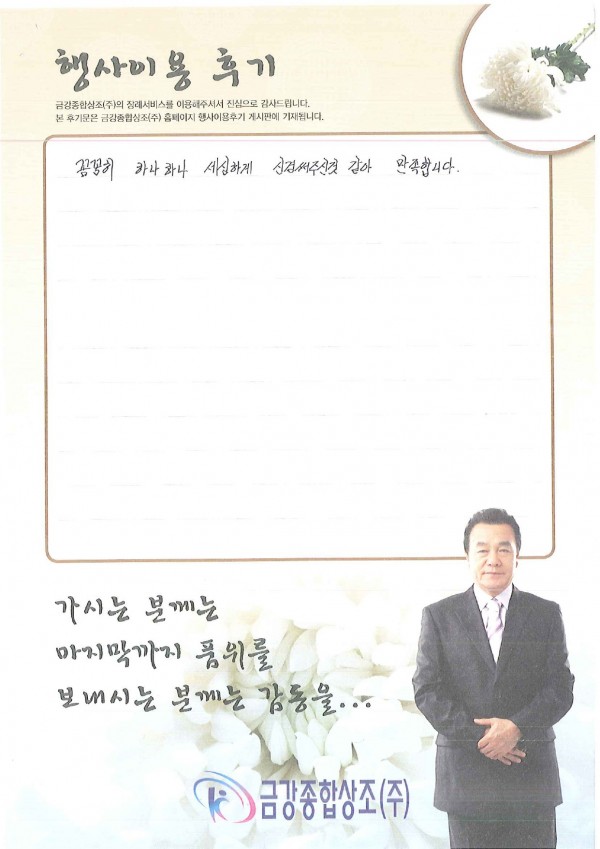 행사이용 후기
금강종합상조(주)의 장례서비스를 이용해주셔서 진심으로 감사드립니다.
본 후기문은 금강종합상조(주) 홈페이지 행사이용후기 게시판에 기재됩니다.
꼼꼼히 하나 하나 세심하게 신경써주신것 같아 만족합니다.
가시는 분께는
마지막까지 품위를
보내시는 분께는 감동을...
금강종합상조(주)